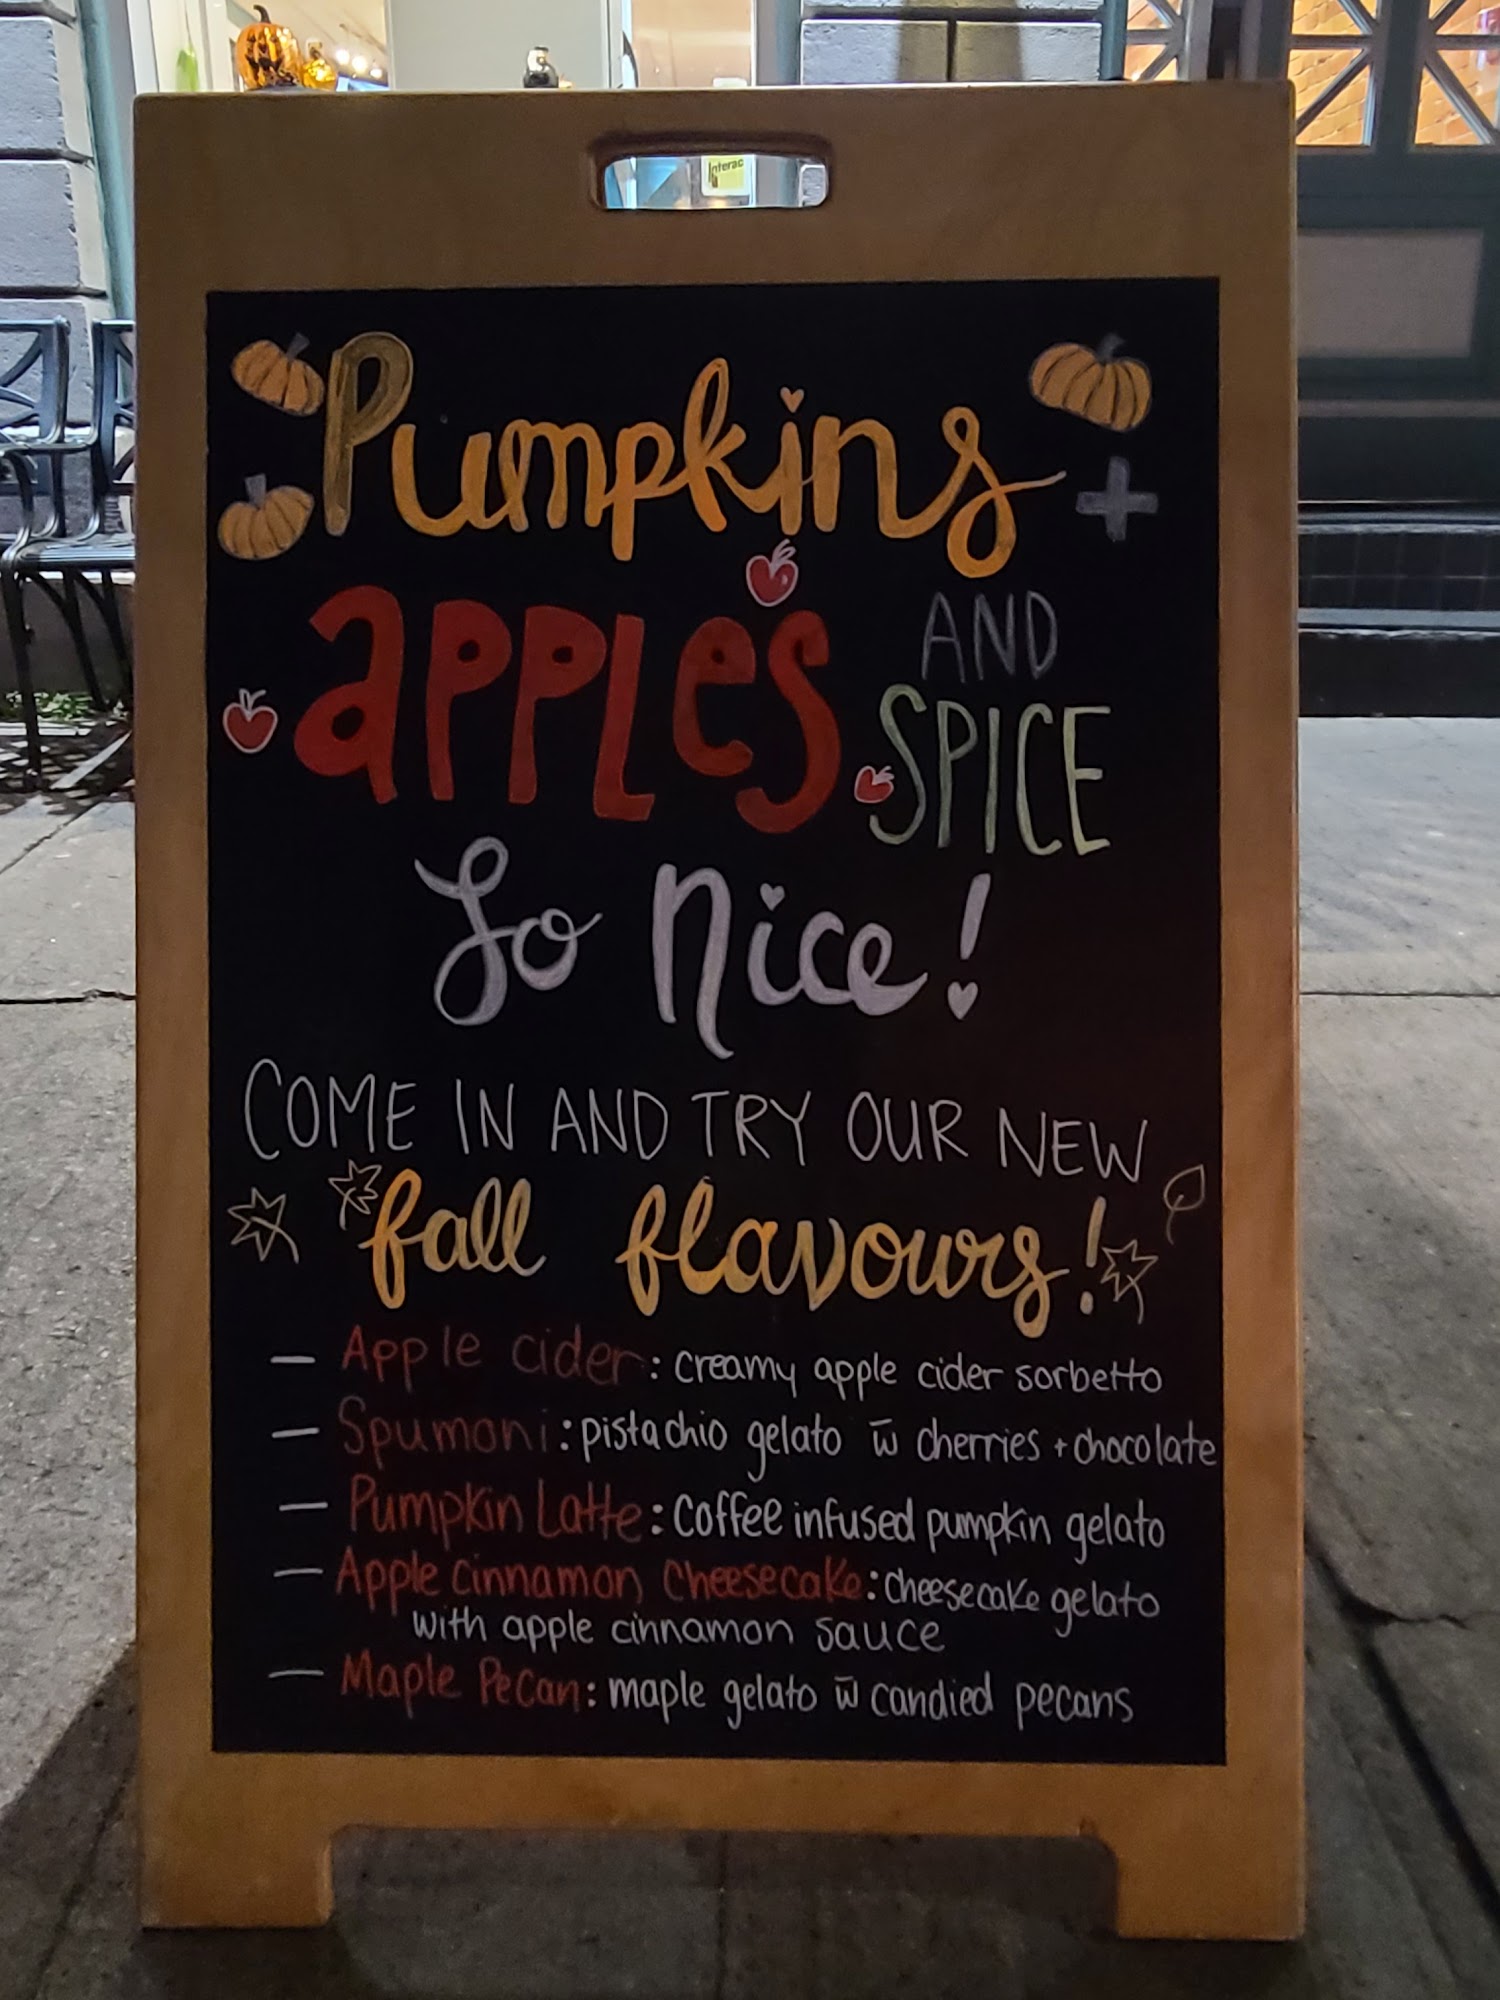 Interac
Pumpkins +
apples AND
SPICE
So nice!
COME IN AND TRY OUR NEW
fall flavours!
— Apple cider: creamy apple cider sorbetto
— Spumoni: pistachio gelato w̄ cherries + chocolate
— Pumpkin Latte: coffee infused pumpkin gelato
— Apple cinnamon cheesecake: cheesecake gelato
with apple cinnamon sauce
— Maple Pecan: maple gelato w̄ candied pecans